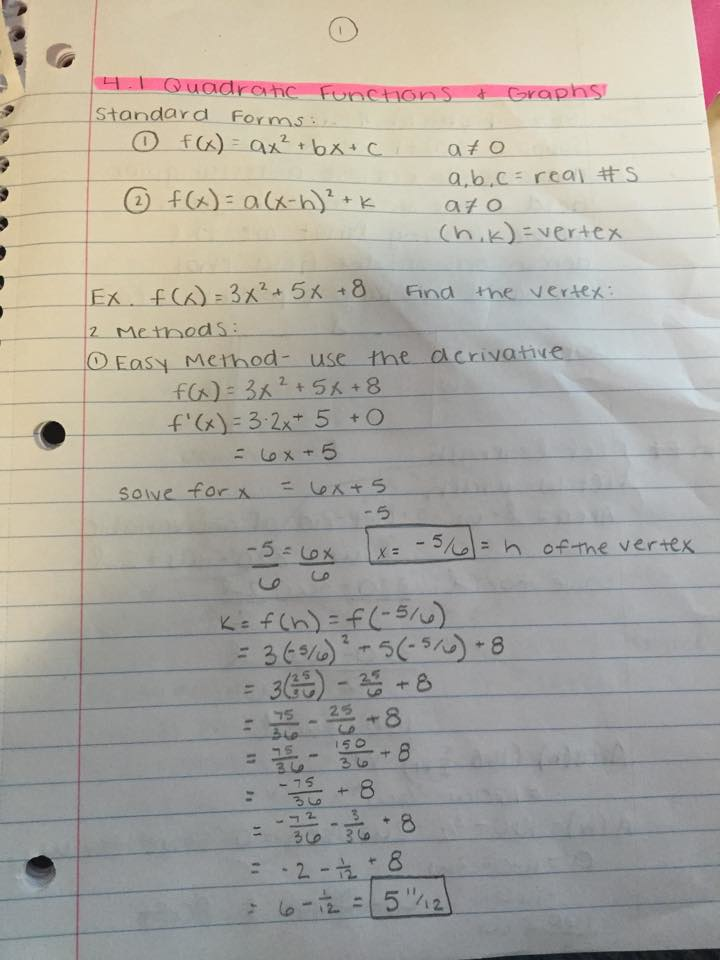 1
4.1 Quadratic Functions + Graphs
Standard Forms:
① f(x) = ax² + bx + c a ≠ 0
a, b, c = real #s
② f(x) = a(x-h)² + k a ≠ 0
(h, k) = vertex
Ex. f(x) = 3x² + 5x + 8 Find the vertex:
2 Methods:
① Easy Method - use the derivative
f(x) = 3x² + 5x + 8
f'(x) = 3·2x + 5 + 0
= 6x + 5
solve for x = 6x + 5
-5
-5/6 = 6x/6 x = -5/6 = h of the vertex
K = f(h) = f(-5/6)
= 3(-5/6)² + 5(-5/6) + 8
= 3(25/36) - 25/6 + 8
= 75/36 - 25/6 + 8
= 75/36 - 150/36 + 8
= -75/36 + 8
= -72/36 - 3/36 + 8
= -2 - 1/12 + 8
= 6 - 1/12 = 5 11/12